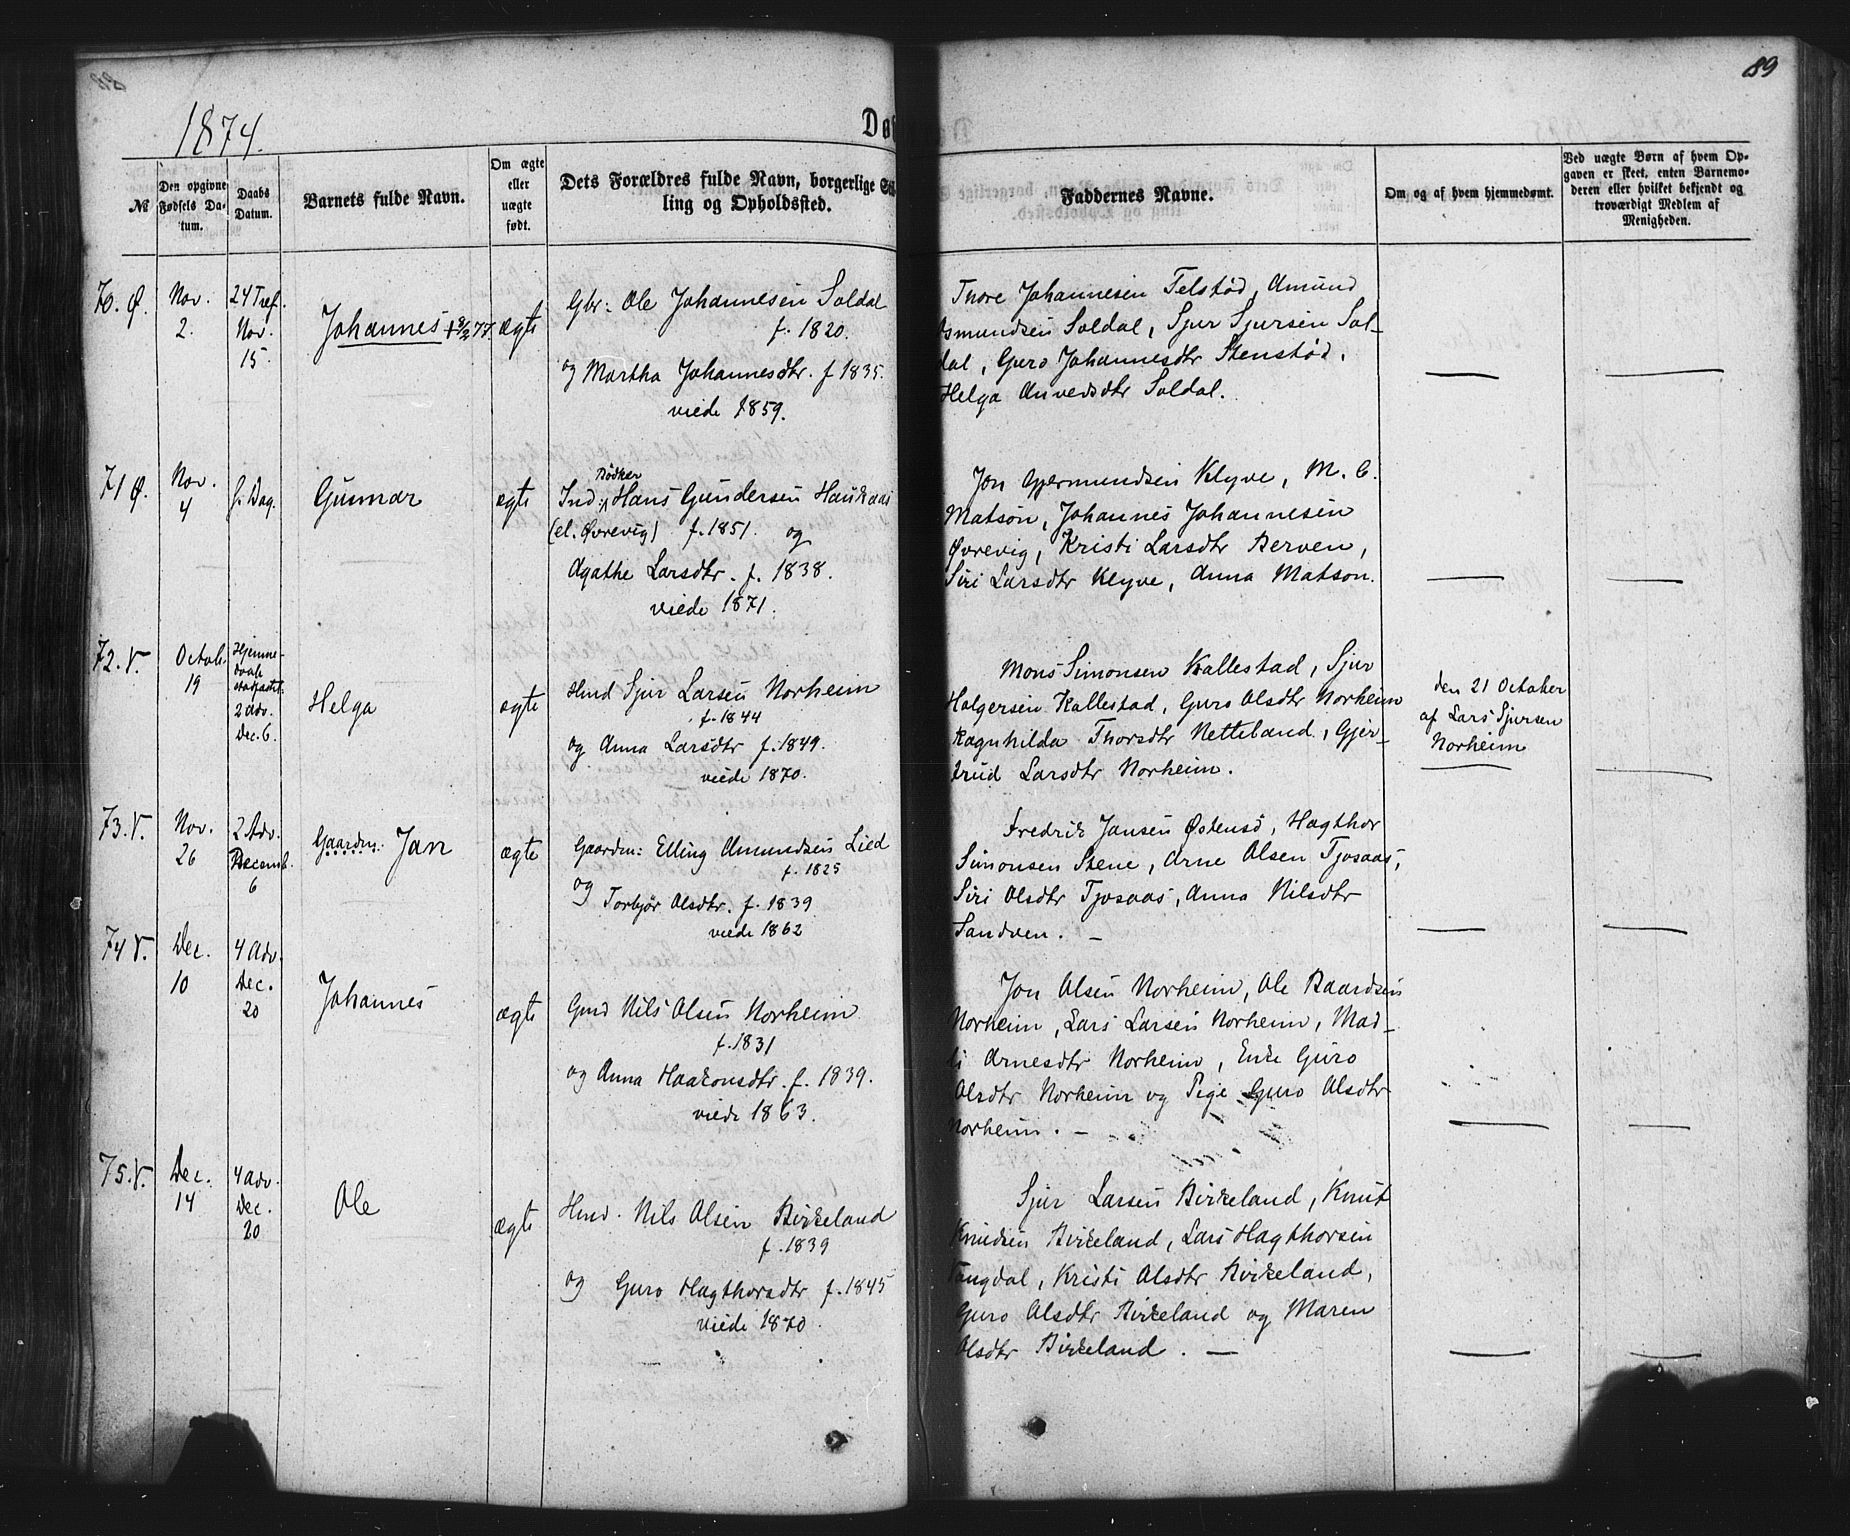 89
1874.
Dø
№
Den opgivne Fødsels Datum.
Daabs Datum.
Barnets fulde Navn.
Om ægte eller uægte født.
Dets Forældres fulde Navn, borgerlige
ling og Opholdssted.
Faddernes Navne.
Om og af hvem hjemmedøbt.
Ved uægte Børn af hvem Op-
gaven er skeet, enten Barnemo-
deren eller hvilket bekjendt og
troværdigt Medlem af
Menigheden.
70. Ø.
Nov.
2.
24 Tref.
Nov.
15.
Johannes
ægte
Gbr: Ole Johannesen Soldal
f. 1820.
og Martha Johannesdtr. f 1835.
viede 1859.
Thore Johannesen Felstød, Amund
Osmundsen Soldal, Sjur Sjursen Sol-
dal, Guro Johannesdtr Stenstød,
Helga Anversdtr Soldal.
71 Ø.
Nov.
4
s. Dag.
Gunnar
ægte
Bødker
Ind: Hans Gundersen Haukaas
(el. Øvrevig) f. 1851. og
Agathe Larsdtr. f. 1838.
viede 1871.
Jon Gjermundsen Klyve, M. C.
Matson, Johannes Johannesen
Øvrevig, Kristi Larsdtr Berven,
Siri Larsdtr Klyve, Anna Matson.
72. V.
Octob.
19
Hjemme-
daab
stadfæstet
2 Adv.
Dec. 6.
Helga
ægte
Hmd Sjur Larsen Norheim
f. 1844
og Anna Larsdtr f. 1849.
viede 1870.
Mons Simonsen Kallestad, Sjur
Holgersen Kallestad, Guro Olsdtr Norheim
Ragnhilda Thorsdtr Netteland, Gjer-
trud Larsdtr Norheim.
den 21 October
af Lars Sjursen
Norheim
73. V.
Nov.
26
2 Adv.
Decemb.
6
Gaardm: Jan
ægte
Gaardm: Elling Amundsen Lied
f. 1825
og
Torbjør Olsdtr. f. 1839
viede 1862
Fredrik Jansen Østensø, Hagthor
Simonsen Stene, Arne Olsen Tjosaas,
Siri Olsdtr Tjosaas, Anna Nilsdtr
Sandven. –
74 V.
Dec.
10
4 Adv.
Dec.
20
Johannes
ægte
Gmd Nils Olsen Norheim
f. 1831
og Anna Haakonsdtr. f. 1839.
viede 1863.
Jon Olsen Norheim, Ole Baardsen
Norheim, Lars Larsen Norheim, Mad-
li Arnesdtr Norheim, Enke Guro
Olsdtr Norheim og Pige Guro Olsdtr
Norheim. –
75. V.
Dec.
14
4 Adv.
Dec.
20
Ole
ægte
Hmd. Nils Olsen Birkeland
f. 1839
og Guro Hagthorsdtr f. 1845
viede 1870.
Sjur Larsen Birkeland, Knut
Knudsen Birkeland, Lars Hagthorsen
Tangdal, Kristi Olsdtr Birkeland,
Guro Olsdtr Birkeland og Maren
Olsdtr Birkeland. –